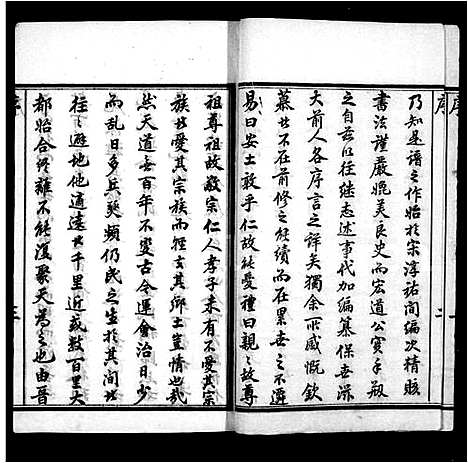 乃知是譜之作始於宋淳祐間編次精賅
書法謹嚴媲美良史而宏道公實手剏
之自茲以往继志述事代加編纂保世滋
大前人各序言之詳矣獨余一所感慨欽
慕者不在前修之能續而在累世之不遷
易曰安土敦乎仁故能愛禮曰親之故尊
祖尊祖故敬宗仁人孝子未有不愛其宗
族者愛其宗族而輕去其鄉土豈情也哉
然天道无百年不變古今運會治日少
而乱日多兵燹頻仍民之生於其間者
往之避地他適遠者千里近或数百里大
都始合終離不能復聚天為之也由昔
序
二
序
三